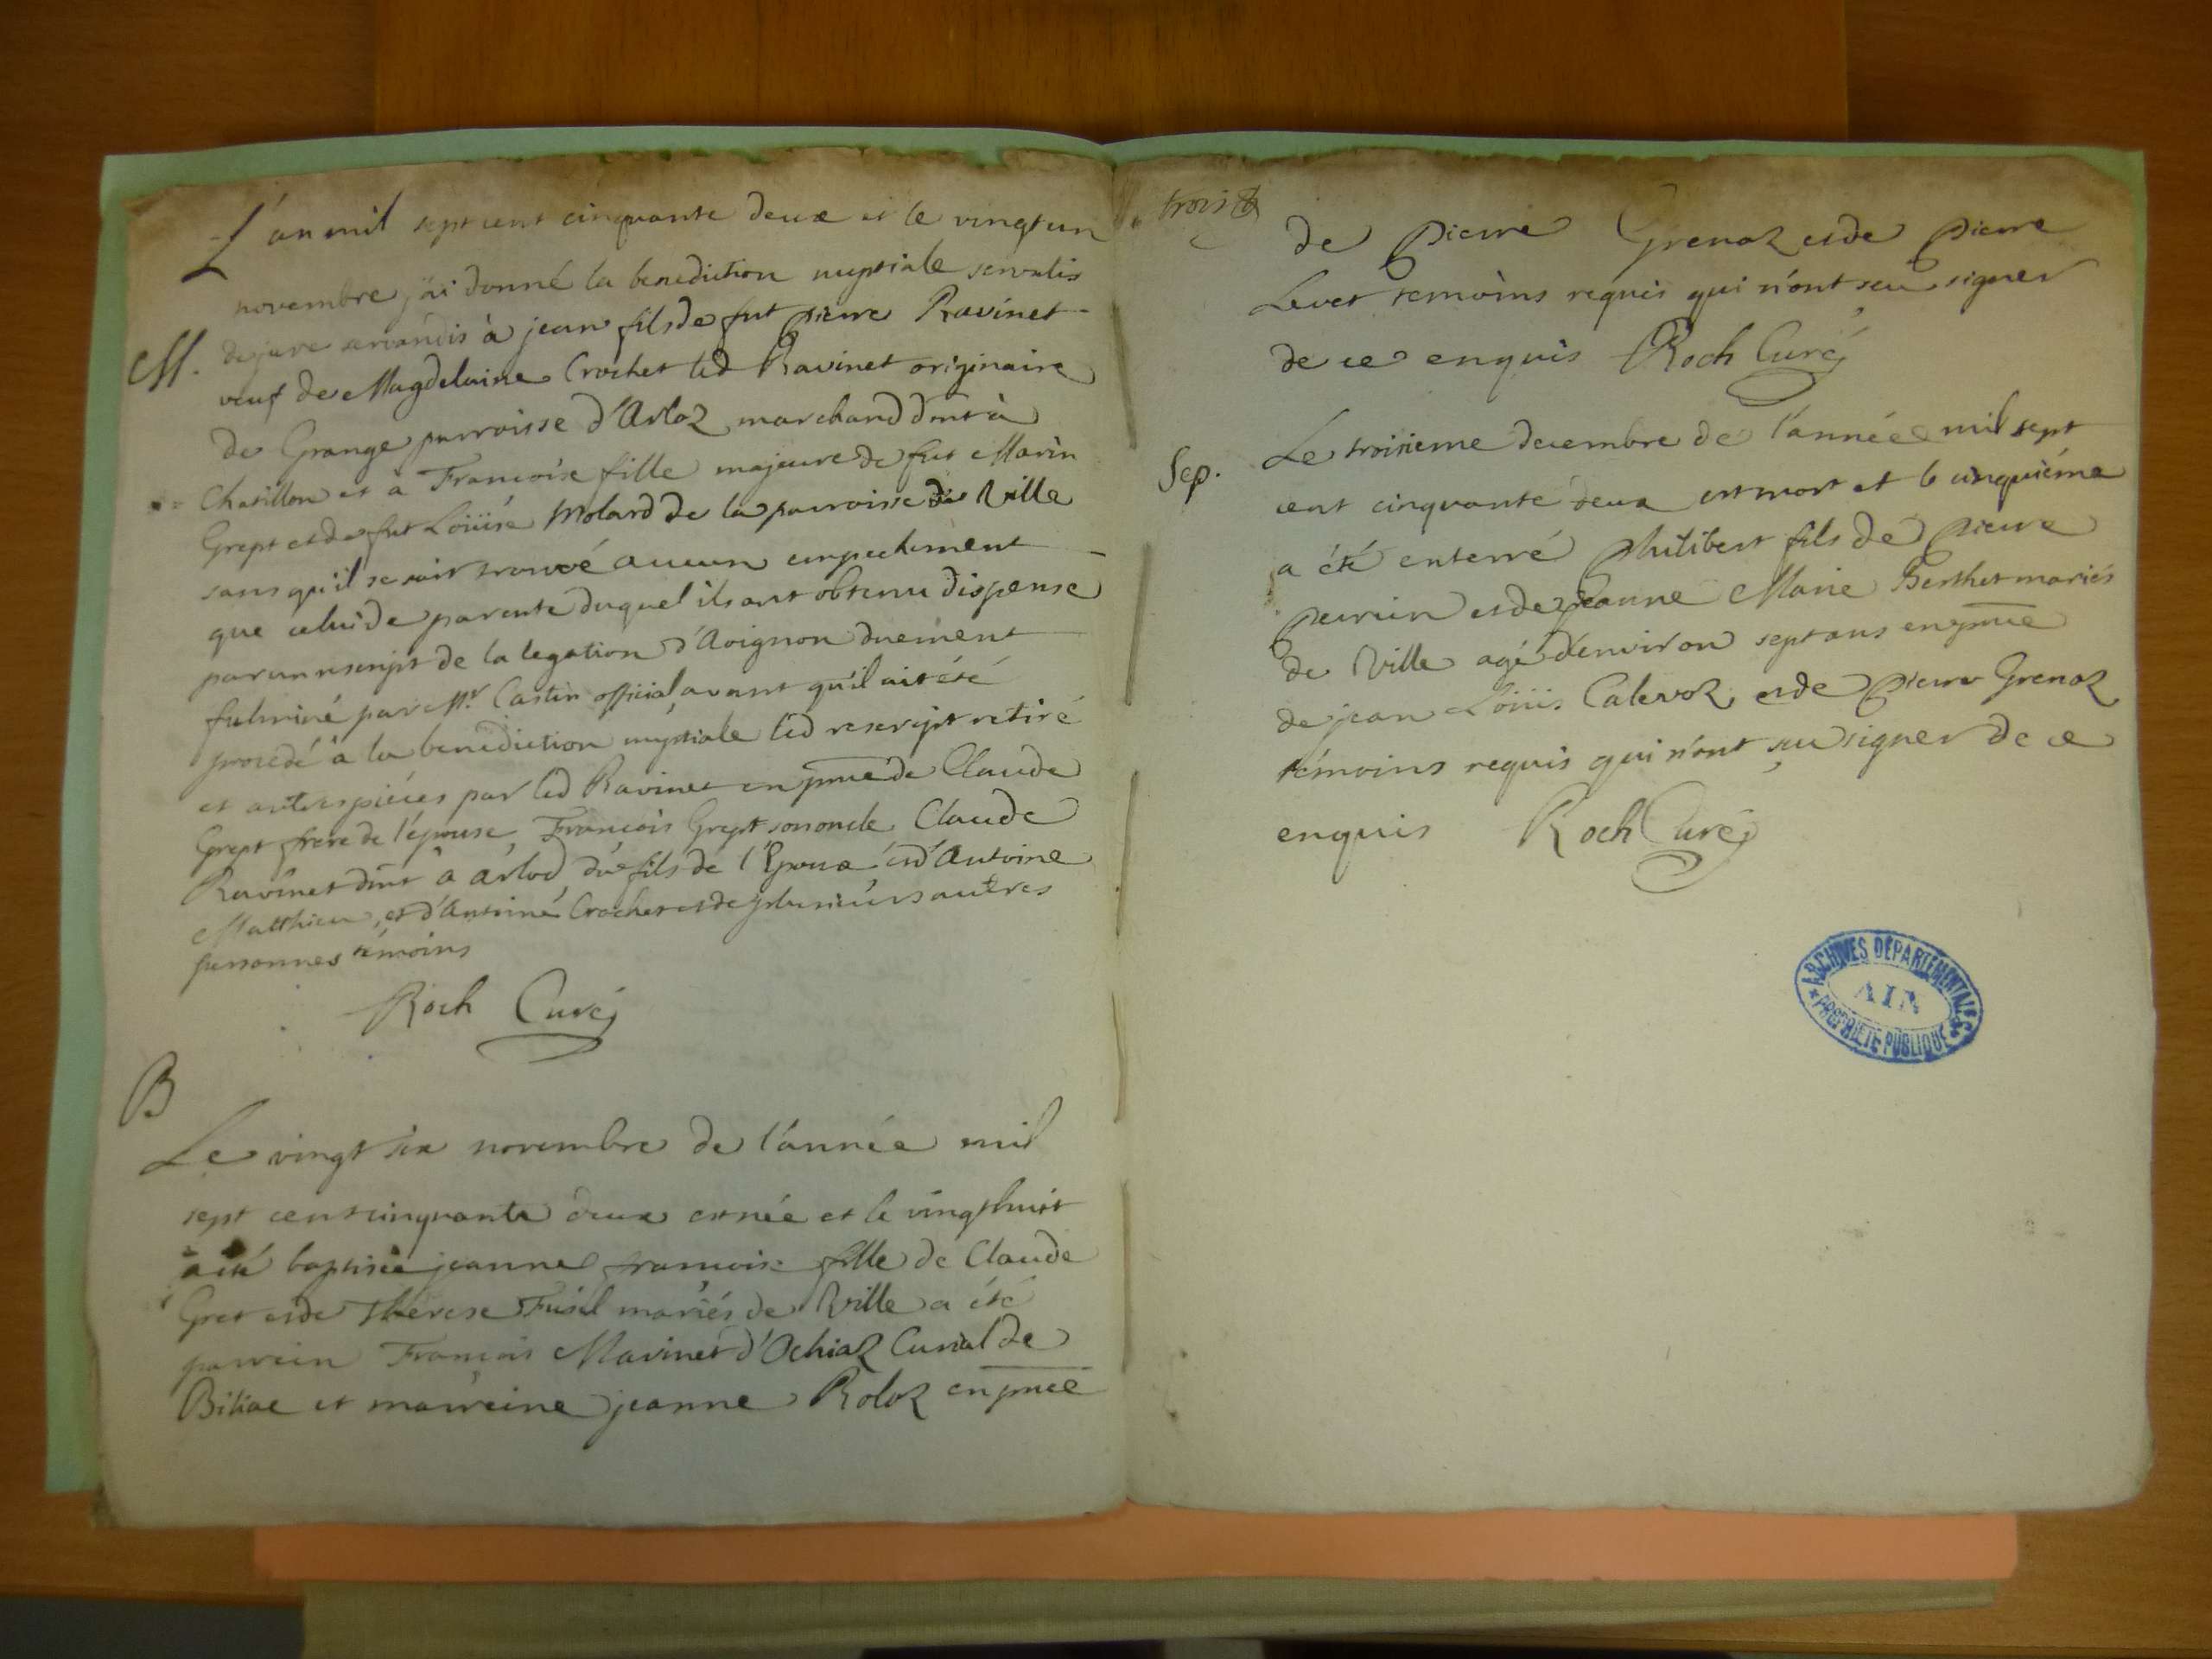 L'an mil sept cent cinquante deux et le vingt un
novembre j'ai donné la benediction nuptiale servatis
de jure servandis à jean fils de fut pierre Ravinet
M.
veuf de Magdelaine Crochet led Ravinet originaire
de Grange parroisse d'Arloz marchand dmt à
Chatillon et à Francoise fille majeure de fut Marin
Grept et de fut Loüise Molard de la parroisse de Ville
sans qu'il se soit trouvé aucun empechement
que celui de parenté duquel ils ont obtenu dispense
par un rescript de la legation d'Avignon duement
fulminé par Mr. Castin official, avant qu'il ait été
procédé à la benediction nuptiale led rescript retiré
et autres piéces par led Ravinet en pnce de Claude
Grept frere de l'épouse, François Grept son oncle Claude
Ravinet dmt à arlod, fils de l'Epoux et d'Antoine
Matthieu, et d'Antoine Crochet et de plusieurs autres
personnes témoins
Roch Curé
B
Le vingt six novembre de l'année mil
sept cent cinquante deux est née et le vingthuit
a été baptisée jeanne francoise fille de Claude
Gret et de Thérese Fusil mariés de Ville a été
parrein François Mavinet d'Ochiaz Curial de
Biliae et marreine jeanne Roloz en pnce
trois
de Pierre Grenoz et de Pierre
Levet temoins requis qui n'ont seu signer
de ce enquis Roch Curé
Sep.
Le troisieme decembre de l'année mil sept
cent cinquante deux est mort et le cinquiéme
a été enterré philibert fils de pierre
perrin et de jeanne Marie Berthet mariés
de Ville agé d'environ sept ans en pnce
de jean Loüis Calevoz et de pierre Grenoz
témoins requis qui n'ont sçu signer de ce
enquis Roch Curé
ARCHIVES DÉPARTEMENTALES
AIN
PROPRIÉTÉ PUBLIQUE